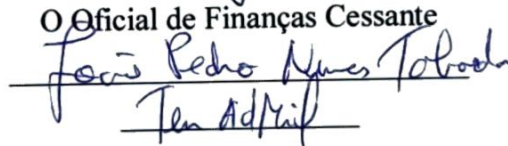 O Oficial de Finanças Cessante
João Pedro Nunes Taborda
Ten AdMil